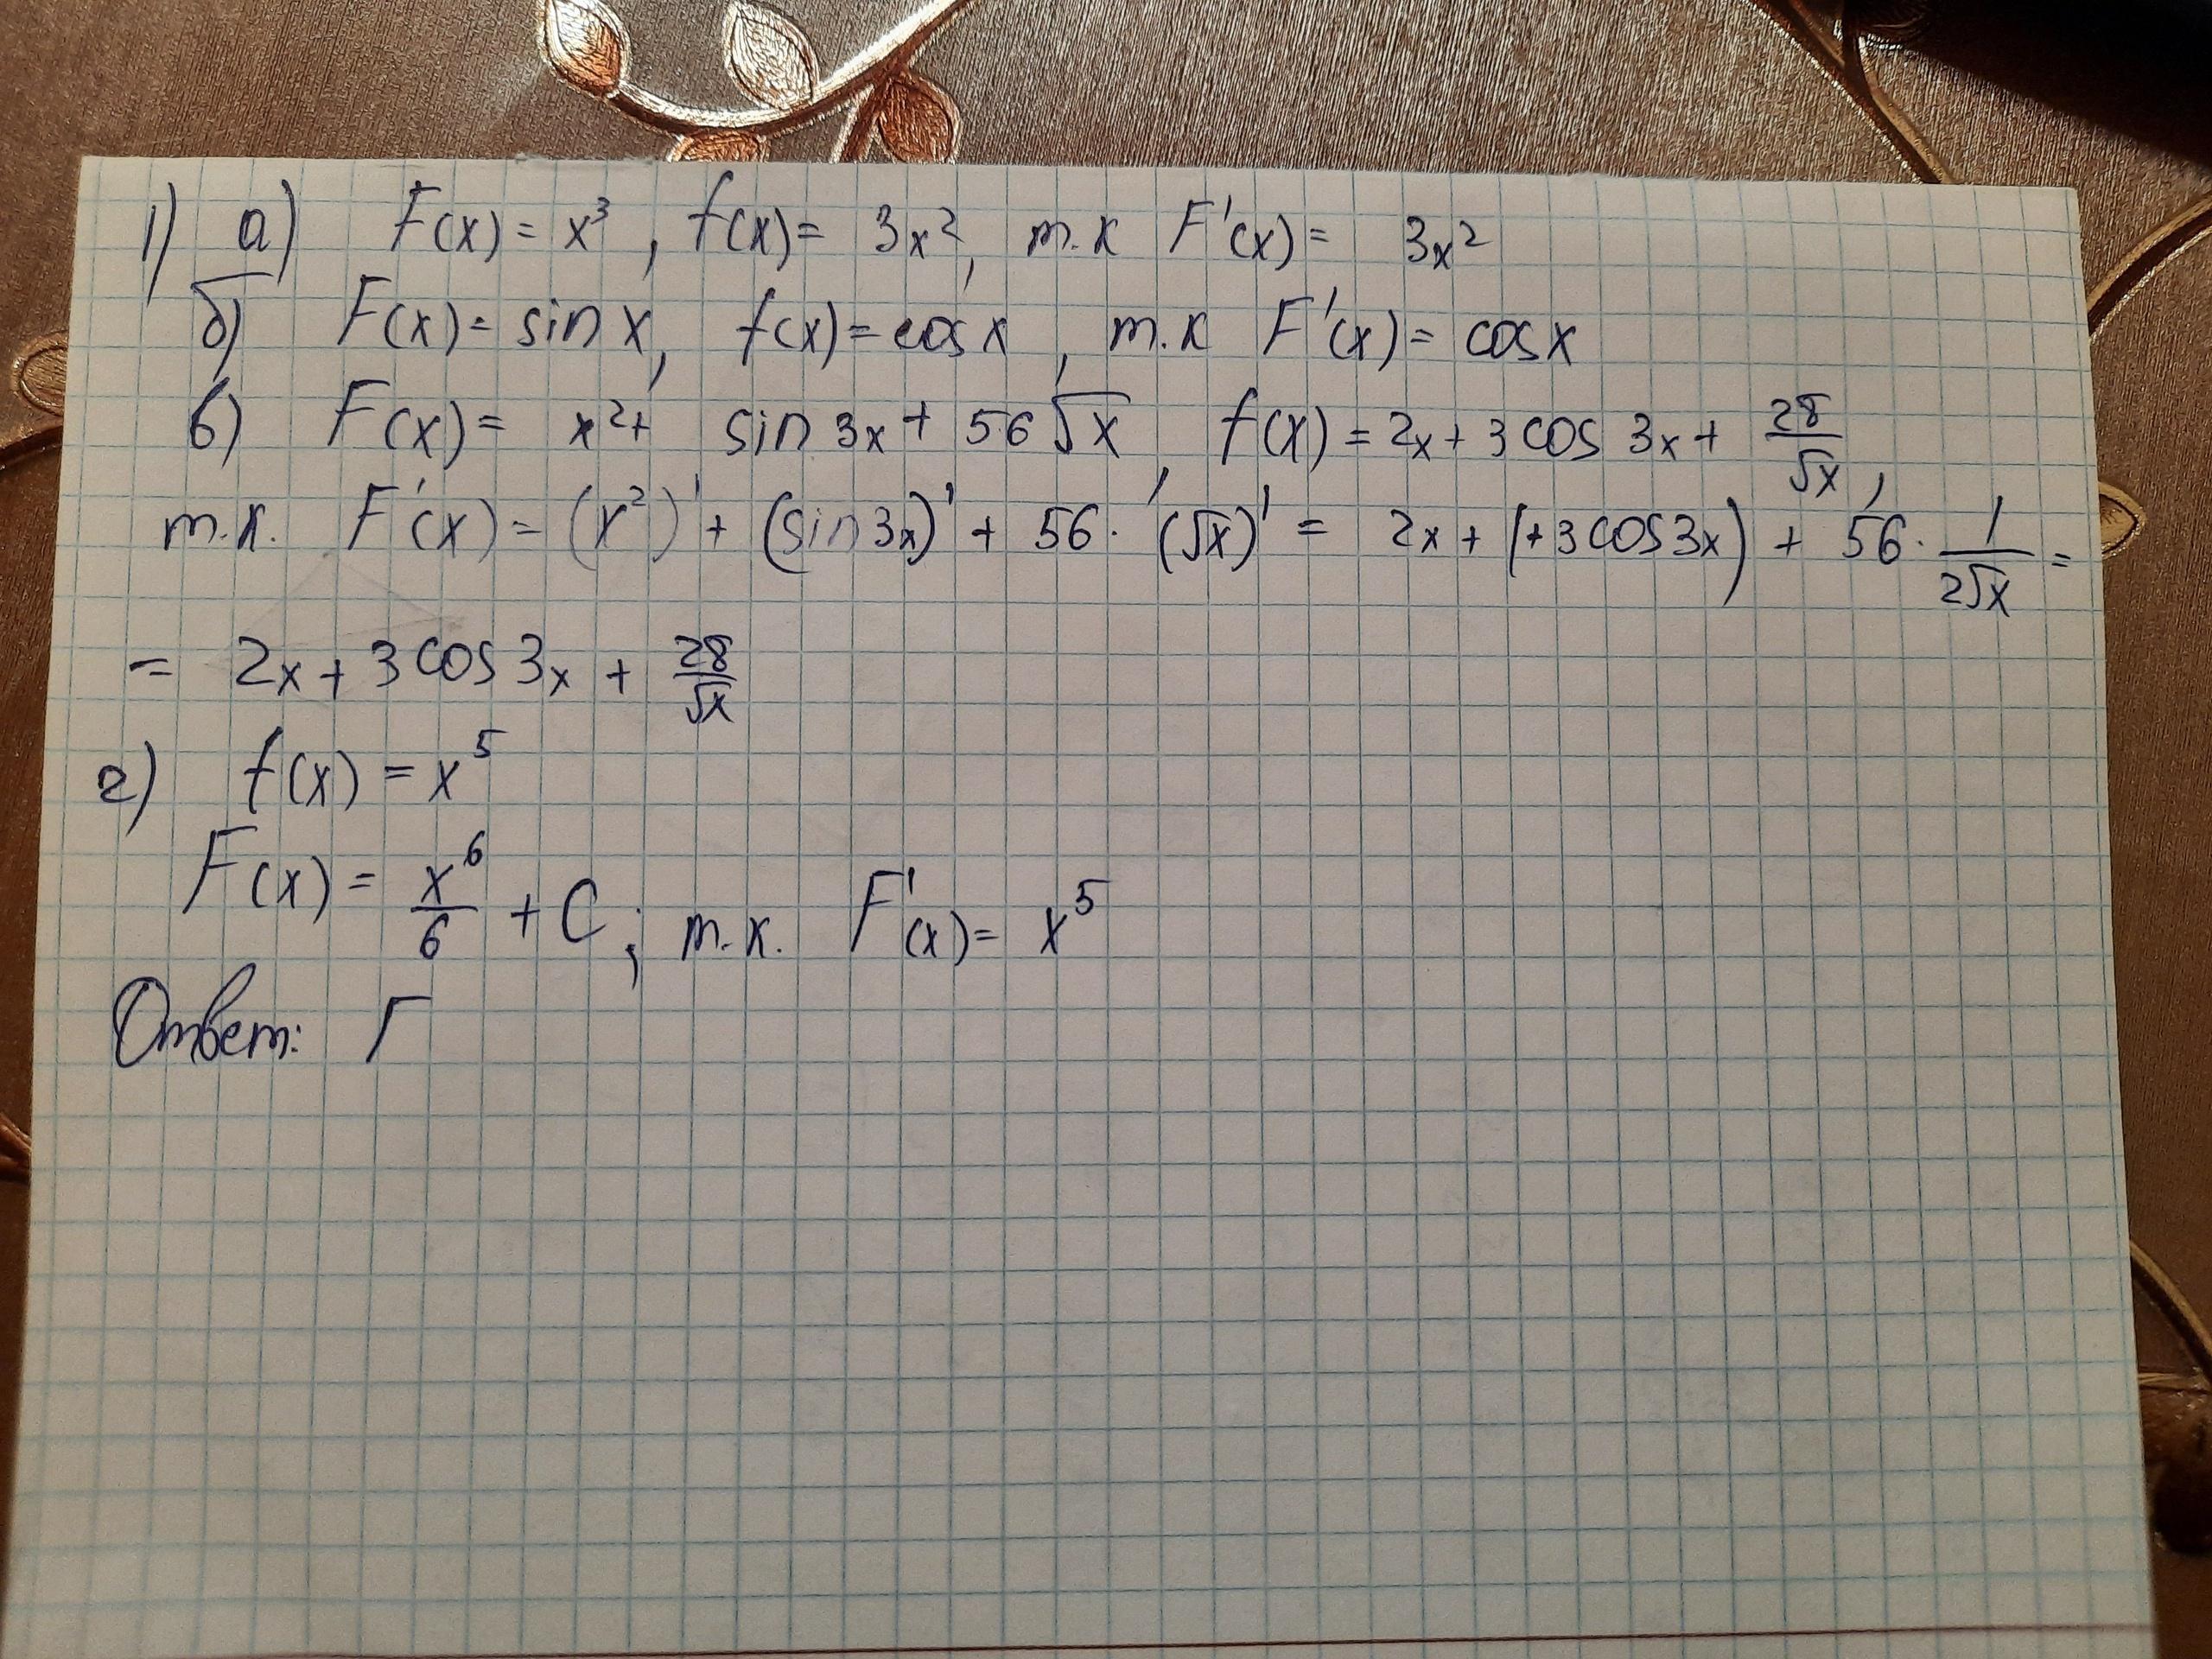 1) а) F(x) = x³, f(x) = 3x², т.к F'(x) = 3x²
б) F(x) = sin x, f(x) = cos x, т.к F'(x) = cos x
в) F(x) = x² + sin 3x + 56√x, f(x) = 2x + 3 cos 3x + 28/√x,
т.к. F'(x) = (x²)' + (sin 3x)' + 56 · (√x)' = 2x + (+3 cos 3x) + 56 · 1/(2√x) =
= 2x + 3 cos 3x + 28/√x
г) f(x) = x⁵
F(x) = x⁶/6 + C; т.к. F'(x) = x⁵
Ответ: Г